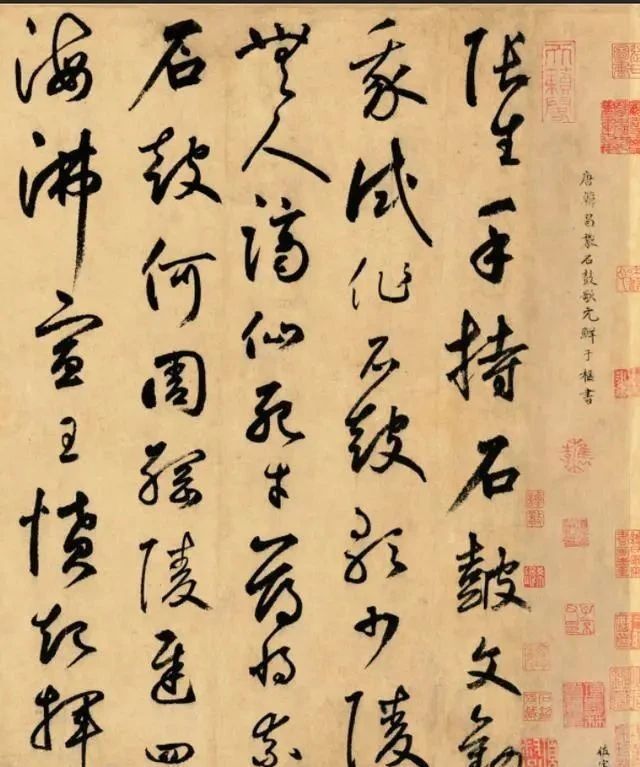 唐韓昌黎石鼓歌元鮮于樞書
天籟閣
張生手持石鼓文勸
我試作石鼓歌少陵
無人謫仙死才薄將奈
石鼓何周綱陵遲四
海沸宣王憤起揮